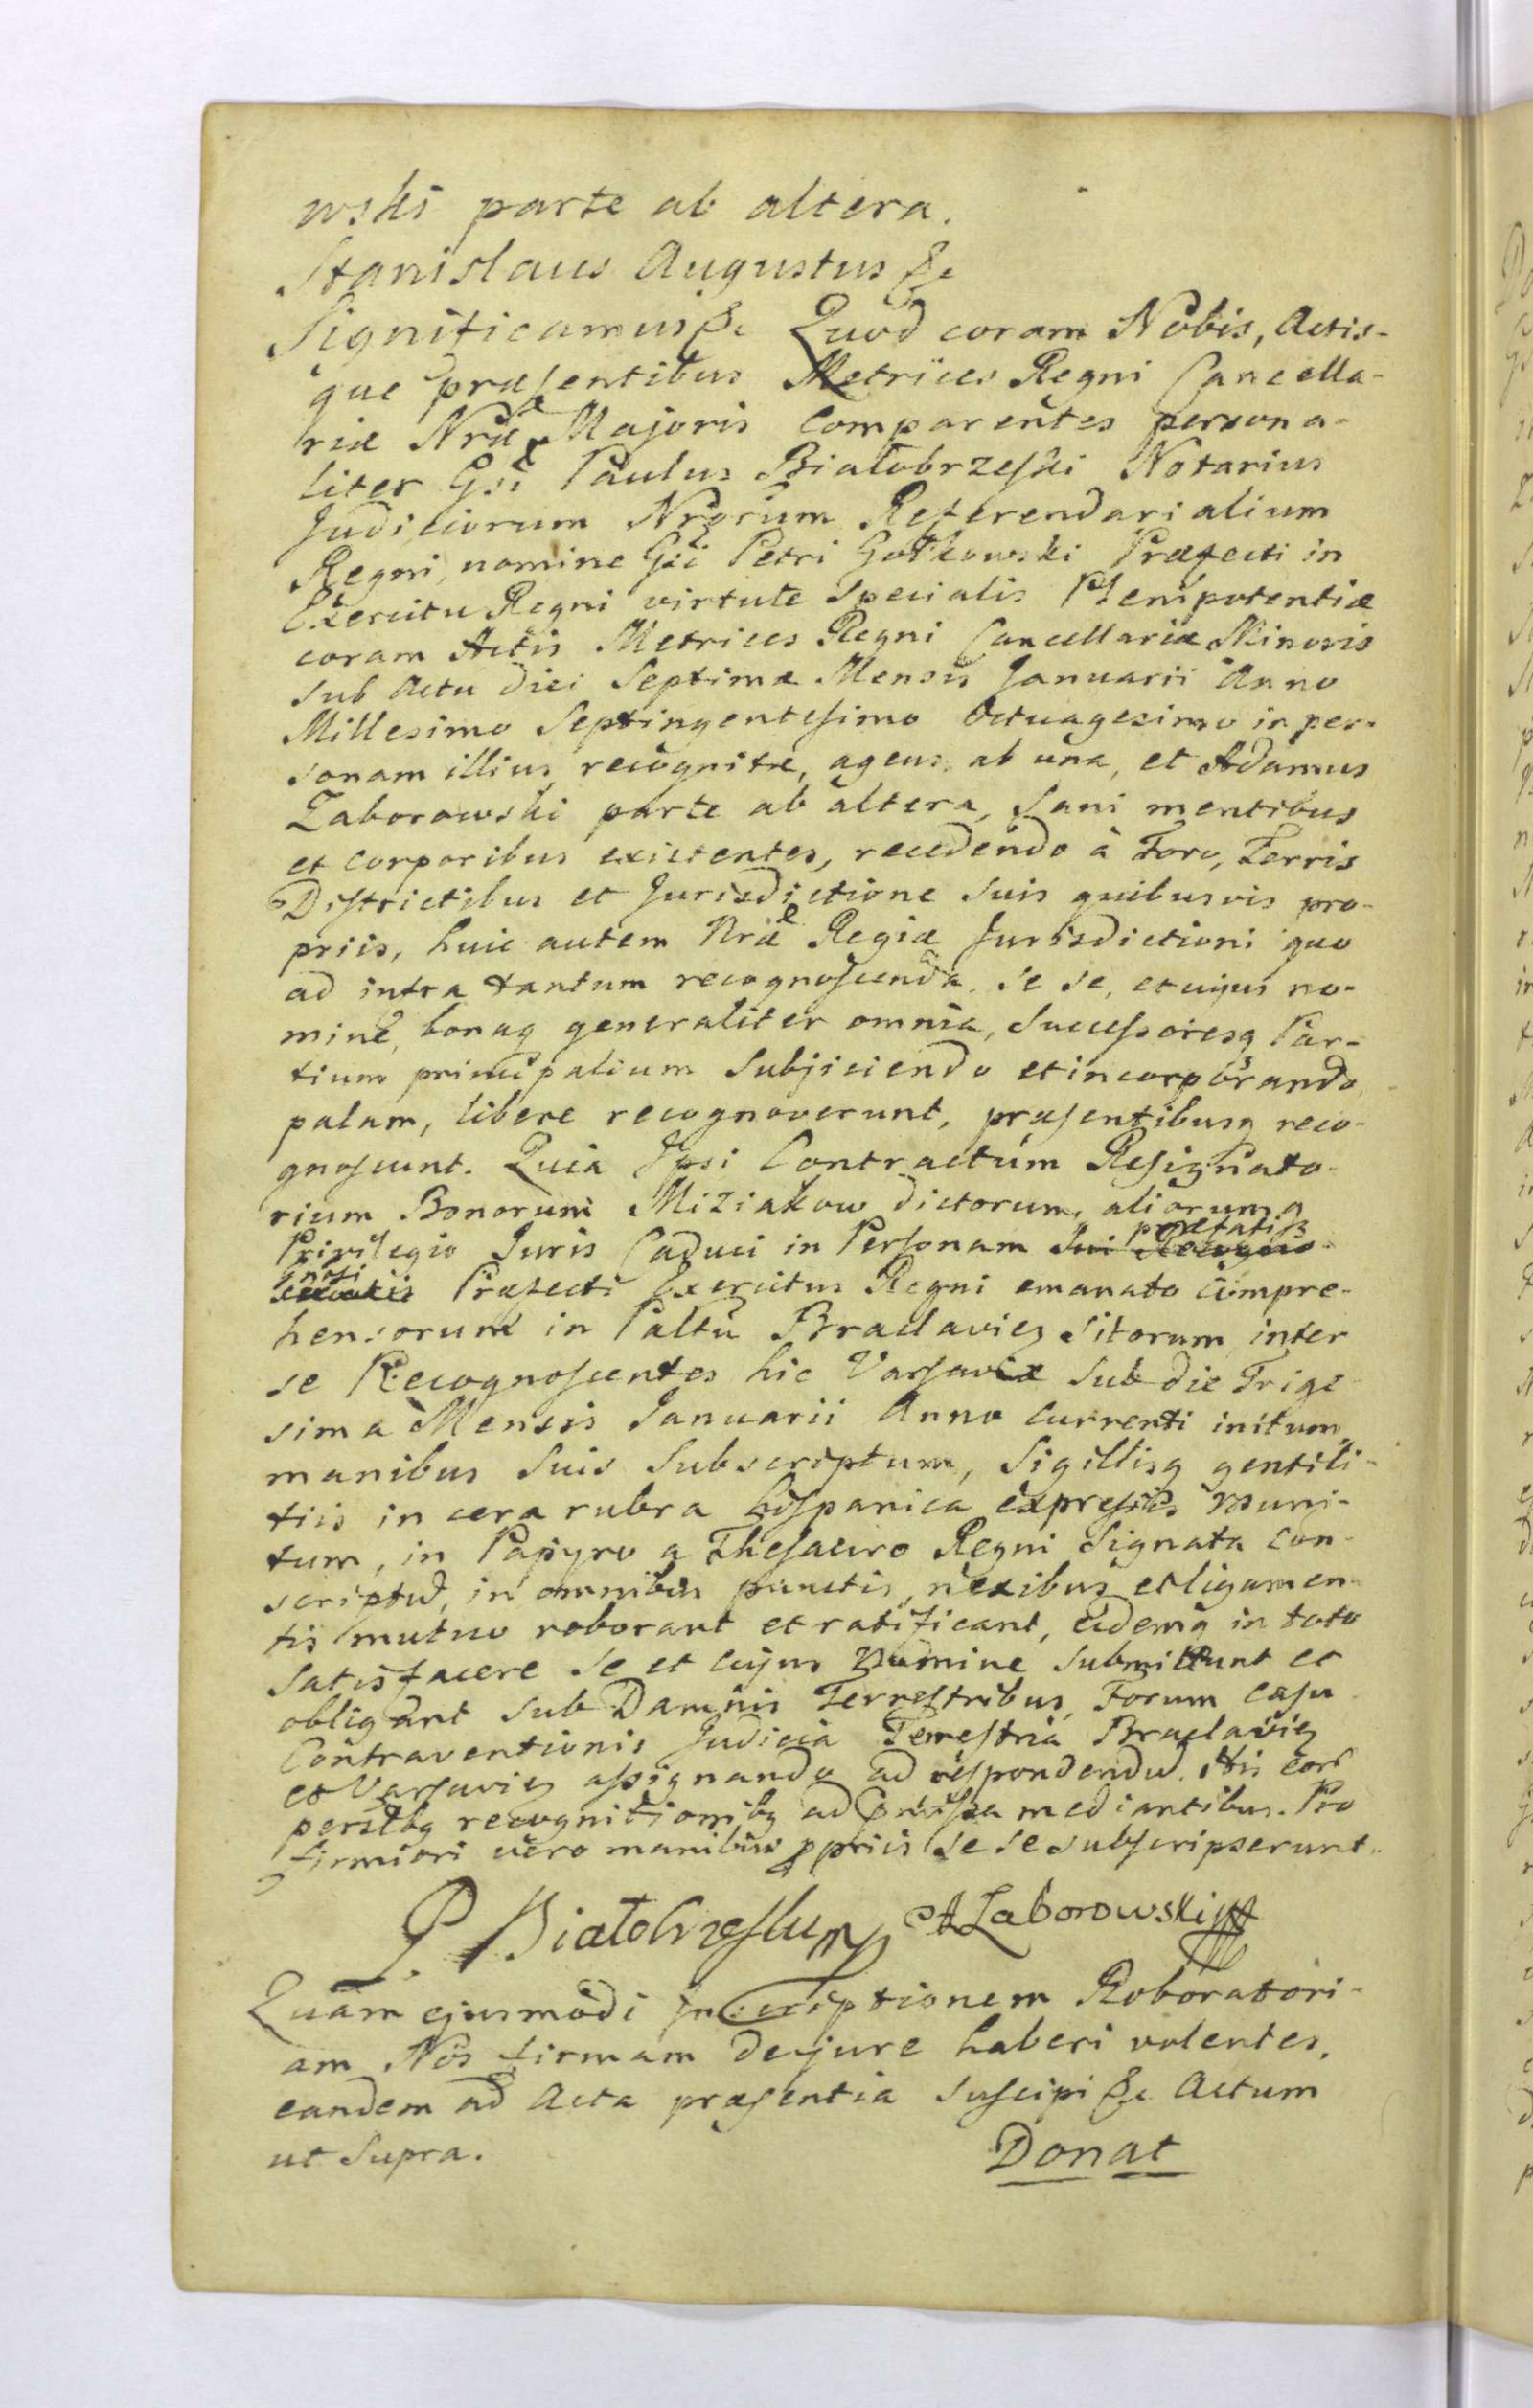 wski parte ab altera.
Stanislaus Augustus &c
Significamus &c Quod coram Nobis, Actis-
que præsentibus Metrices Regni Cancella-
riæ Nræ Majoris Comparentes persona-
liter Gsi Paulus Białobrzeski Notarius
Judiciorum Nrorum Referendarialium
Regni, nomine Gsi Petri Gołkowski Præfecti in
Exercitu Regni virtute specialis Plenipotentiæ
coram Actis Metrices Regni Cancellariæ Minoris
sub Actu diei Septima Mensis Januarii Anno
Millesimo Septingentesimo Octuagesimo in per-
sonam illius recognitæ, agens ab una, et Adamus
Zaborowski parte ab altera, Sani mentibus
et corporibus existentes, recedendo à Foro, Terris
Districtibus et Jurisdictione suis quibusvis pro-
priis, huic autem Nræ Regiæ Jurisdictioni quo
ad infra tantum recognoscenda, se se, et cujus no-
mine, bonaq generaliter omnia, Successoresq Par-
tium principalium Subjiciendo et incorporando
palam, libere recognoverunt, præsentibusq reco-
gnoscunt. Quia Ipsi Contractum Resignato-
rium Bonorum Miziakow dictorum, aliorumq
præfatis
Privilegio Juris Caduci in Personam Sui Recogno-
gnosi
Præfecti Exercitus Regni emanato compre-
hensorum in Paltu Braclavien sitorum inter
se Recognoscentes hic Varsaviæ sub die Trige-
sima Mensis Januarii Anno currenti initum,
manibus suis Subscriptum, Sigillisq gentili-
tiis in cera rubra hispanica expressis muni-
tum, in Papyro a Thesauro Regni Signata con-
scriptu, in omnibus punctis, nexibus et ligamen-
tis mutuo roborant et ratificant, eidemq in toto
satisfacere se et cujus nomine submittunt et
obligant sub Damnis Terrestribus, Forum casu
Contraventionis Judicia Terrestria Braclavien
et Varsavien assignando ad respondendu. His eor
persbq recognitionibq ad pmissa mediantibus. Pro
firmiori vero manibus ppriis se se subscripserunt.
P Białobrzeski mp A Zaborowski mp
Quam ejusmodi Inscriptionem Roboratori-
am Nos firmam dejure haberi volentes,
eandem ad Acta præsentia suscipi &c Actum
ut supra.
Donat